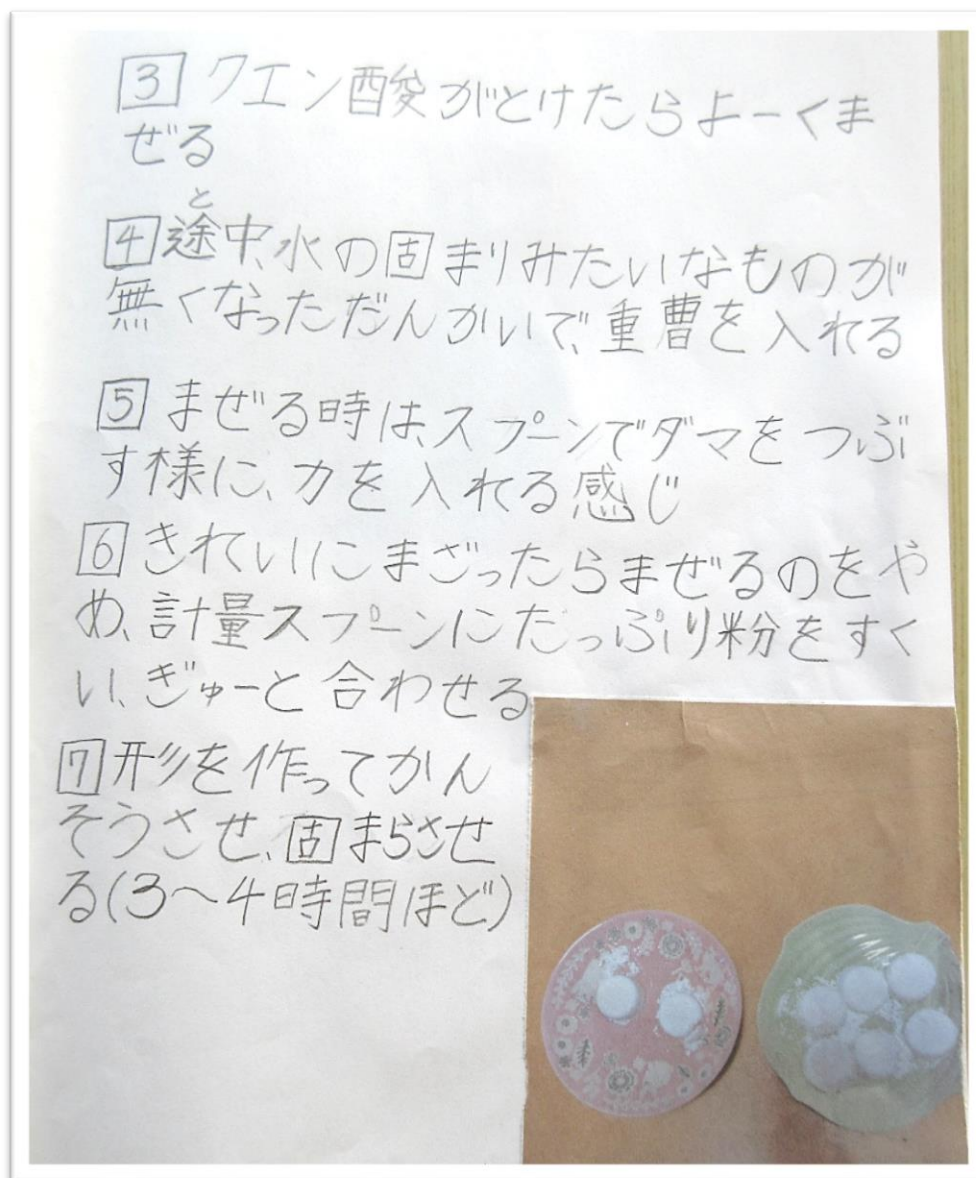 3 クエン酸がとけたらよーくま
ぜる
と
4 途中、水の固まりみたいなものが
無くなっただんかいで、重曹を入れる
5 まぜる時は、スプーンでダマをつぶ
す様に、力を入れる感じ
6 きれいにまざったらまぜるのをや
め、計量スプーンにたっぷり粉をすく
い、ぎゅーと合わせる
7 形を作ってかん
そうさせ、固まらさせ
る(3〜4時間ほど)